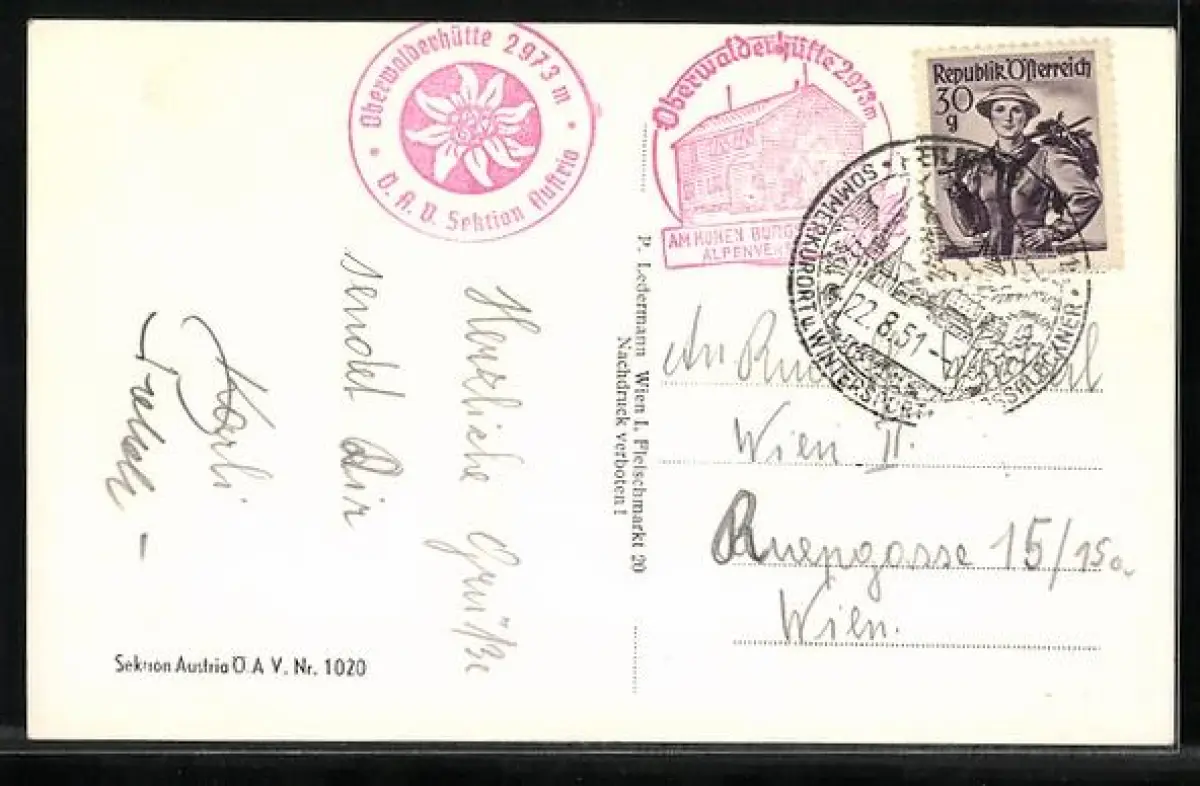 Oberwalderhütte 2973 m
Ö. A. V. Sektion Austria
Oberwalderhütte 2973m
AM HOHEN BURGS
ALPENVER
Republik Österreich
30
g
SOMMERKURORT U. WINTERSPORT
22.8.51
Herrliche Grüße
sendet Dir
Karli
P. Ledermann Wien I. Fleischmarkt 20
Nachdruck verboten!
An
Wien II.
Ruepgasse 15/15a
Wien.
Sektion Austria Ö. A. V. Nr. 1020